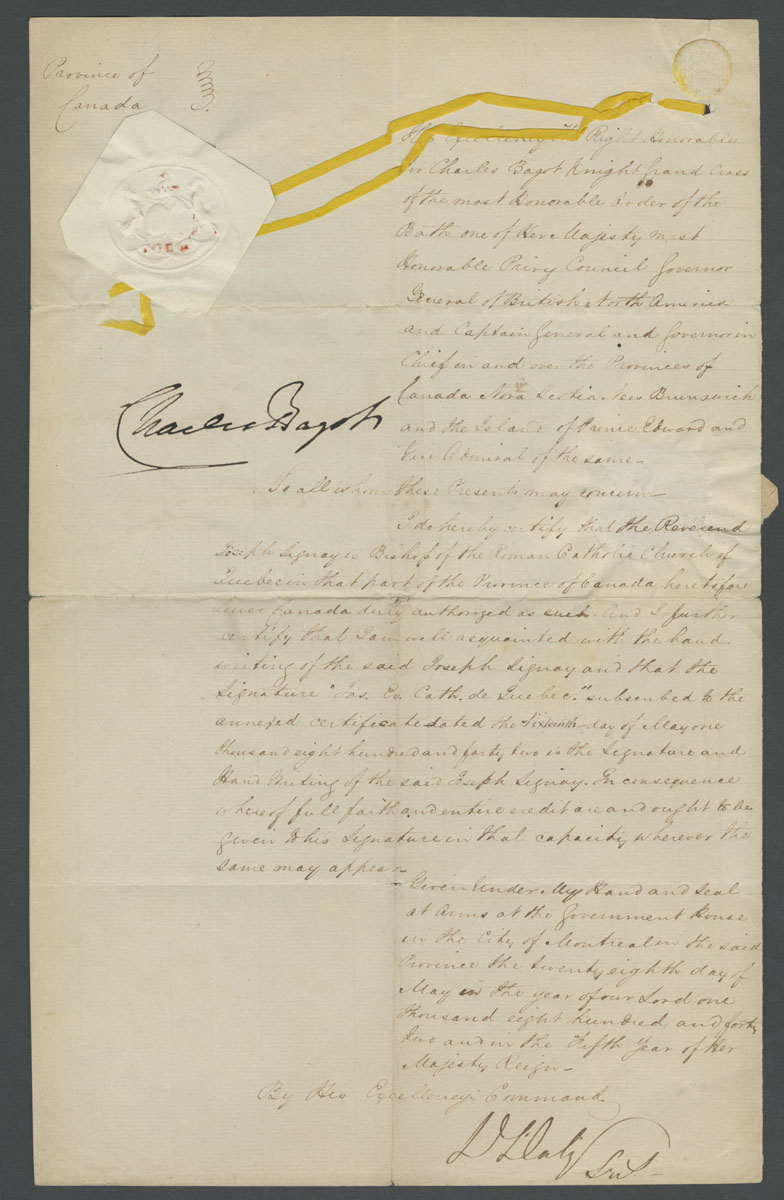 Province of
Canada
His Excellency the Right Honorable
Sir Charles Bagot Knight Grand Cross
of the most Honorable Order of the
Bath one of Her Majesty most
Honorable Privy Council Governor
General of British North America
and Captain General and Governor in
Chief in and over the Provinces of
Canada Nova Scotia New Brunswick
and the Island of Prince Edward and
Vice Admiral of the same—
Charles Bagot
To all whom these Presents may concern—
I do hereby certify that the Reverend
Joseph Signay is Bishop of the Roman Catholic Church of
Quebec in that part of the Province of Canada heretofore
Lower Canada duly authorized as such. And I further
certify that I am well acquainted with the hand
writing of the said Joseph Signay and that the
Signature "Jos. Ev. Cath. de Quebec." subscribed to the
annexed certificate dated the Sixteenth day of May one
thousand eight hundred and forty two is the Signature and
Hand Writing of the said Joseph Signay. In consequence
whereof full faith and entire credit are and ought to be
given to his Signature in that capacity wherever the
same may appear—
Given Under My Hand and Seal
at Arms at the Government House
in the City of Montreal in the said
Province the Twenty eighth day of
May in the year of our Lord one
thousand eight hundred and forty
two and in the Fifth Year of Her
Majesty Reign—
By His Excellency's Command.
D Daly